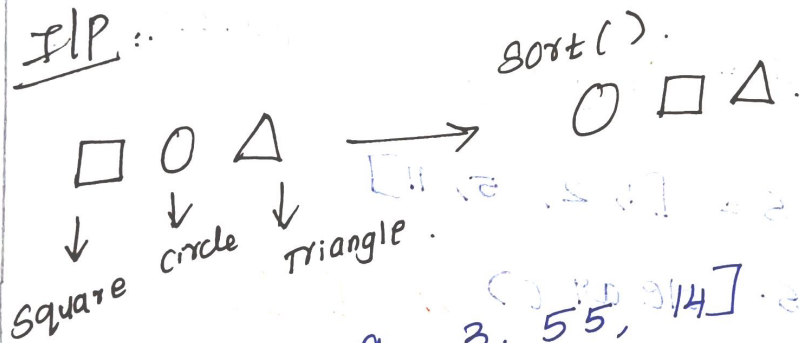 I/P :-
sort().
Square Circle Triangle.
3, 55, 14]